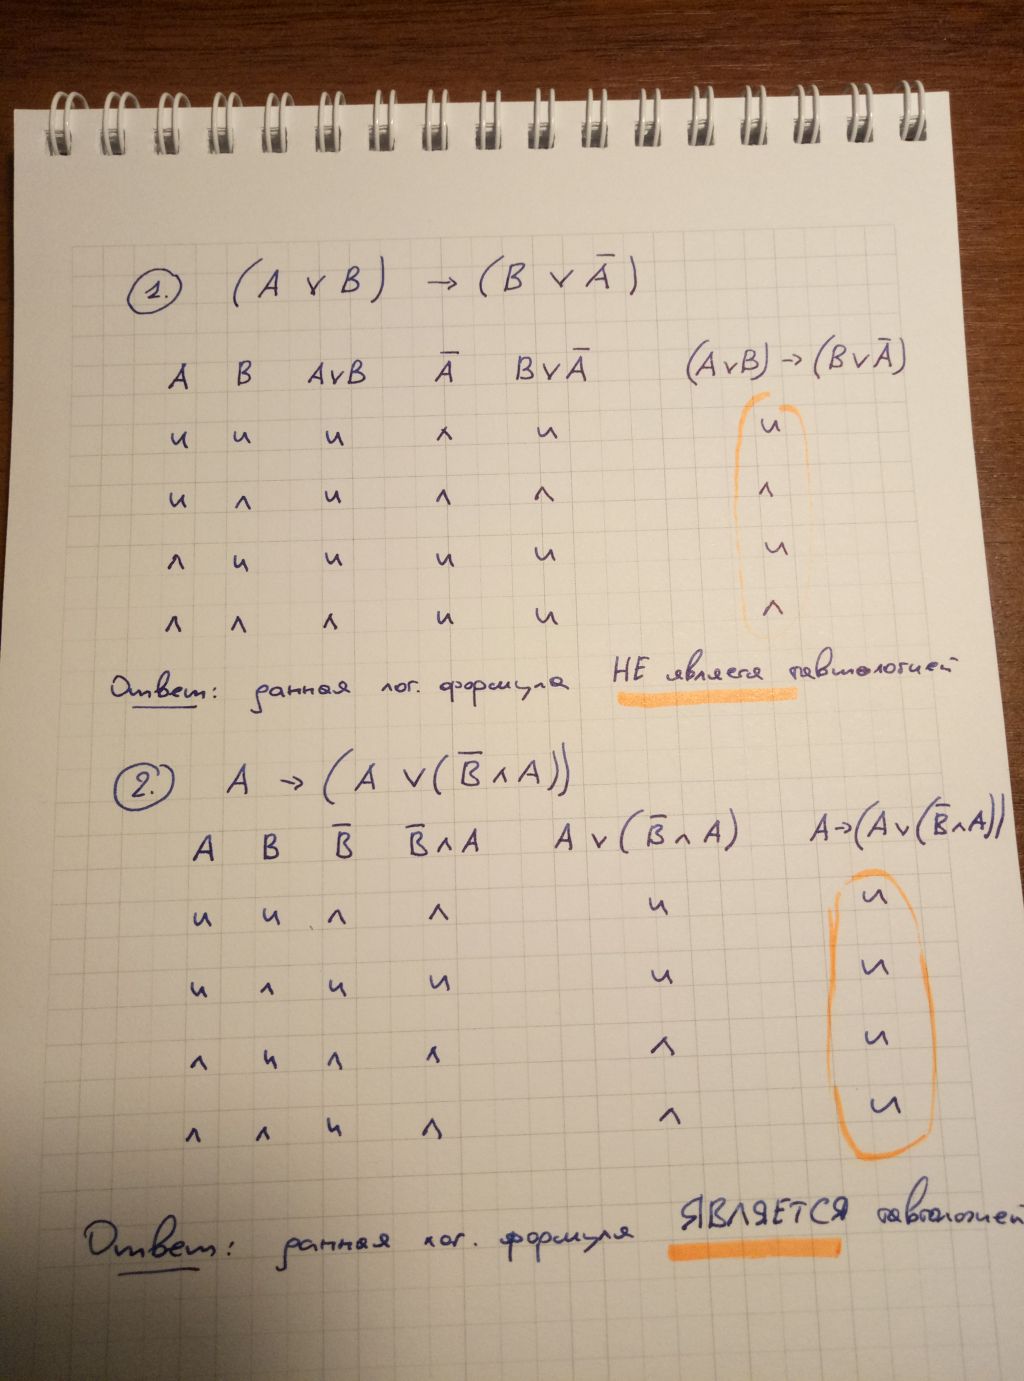 1. (A ∨ B) → (B ∨ A̅)
A B A∨B A̅ B∨A̅ (A∨B) → (B∨A̅)
и и и л и и
и л и л л л
л и и и и и
л л л и и л
Ответ: данная лог. формула НЕ является тавтологией
2. A → (A ∨ (B̅ ∧ A))
A B B̅ B̅ ∧ A A ∨ (B̅ ∧ A) A→(A∨(B̅∧A))
и и л л и и
и л и и и и
л и л л л и
л л и л л и
Ответ: данная лог. формула ЯВЛЯЕТСЯ тавтологией